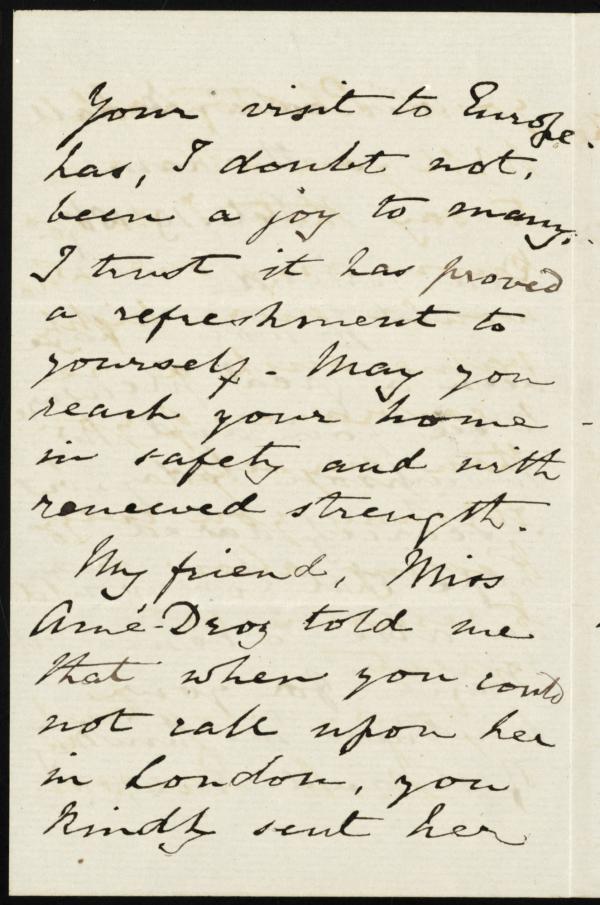 Your visit to Europe
has, I doubt not,
been a joy to many.
I trust it has proved
a refreshment to
yourself - May you
reach your home -
in safety and with
renewed strength.
My friend, Miss
Amé-Droz told me
that when you could
not call upon her
in London, you
kindly sent her